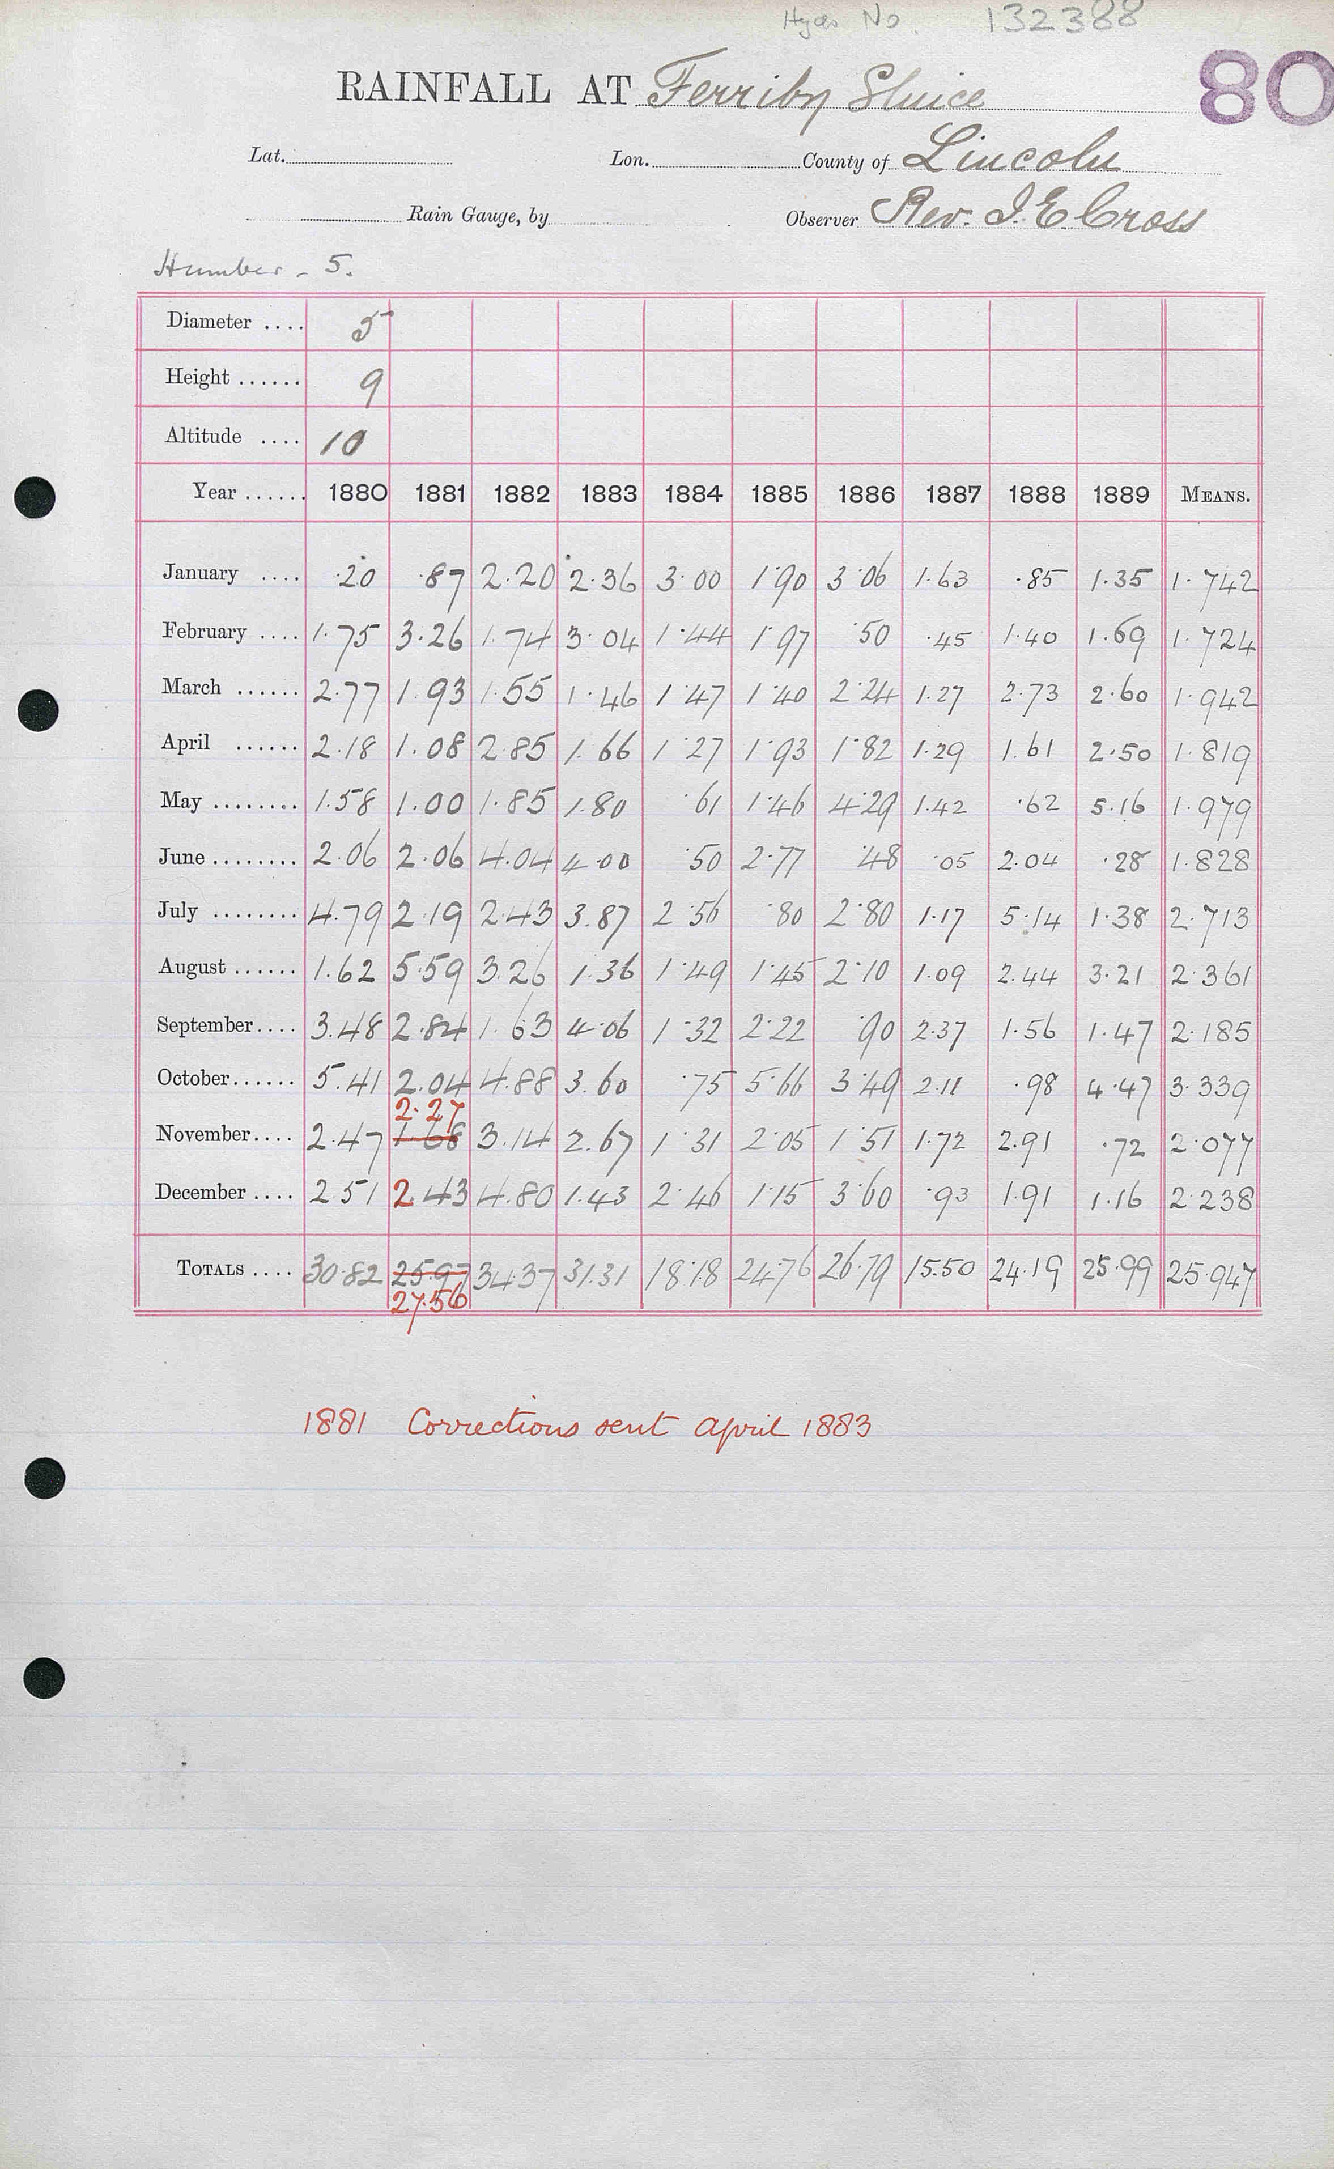 Hyds No. 132388
80
RAINFALL AT Ferriby Sluice
Lat. Lon. County of Lincoln
Rain Gauge, by Observer Rev. J. E Cross
Humber - 5.
Diameter .... 5
Height ...... 9
Altitude .... 10
Year ...... 1880 1881 1882 1883 1884 1885 1886 1887 1888 1889 MEANS.
January .... .20 .87 2.20 2.36 3.00 1.90 3.06 1.63 .85 1.35 1.742
February .... 1.75 3.26 1.74 3.04 1.44 1.97 .50 .45 1.40 1.69 1.724
March ...... 2.77 1.93 1.55 1.46 1.47 1.40 2.24 1.27 2.73 2.60 1.942
April ...... 2.18 1.08 2.85 1.66 1.27 1.93 1.82 1.29 1.61 2.50 1.819
May ........ 1.58 1.00 1.85 1.80 .61 1.46 4.29 1.42 .62 5.16 1.979
June ........ 2.06 2.06 4.04 4.00 .50 2.77 .48 .05 2.04 .28 1.828
July ........ 4.79 2.19 2.43 3.87 2.56 .80 2.80 1.17 5.14 1.38 2.713
August ...... 1.62 5.59 3.26 1.36 1.49 1.45 2.10 1.09 2.44 3.21 2.361
September.... 3.48 2.84 1.63 4.06 1.32 2.22 .90 2.37 1.56 1.47 2.185
October...... 5.41 2.04 4.88 3.60 .75 5.66 3.49 2.11 .98 4.47 3.339
2.27
November.... 2.47 1.68 3.14 2.67 1.31 2.05 1.51 1.72 2.91 .72 2.077
December .... 2.51 2.43 4.80 1.43 2.46 1.15 3.60 .93 1.91 1.16 2.238
TOTALS .... 30.82 25.97 34.37 31.31 18.18 24.76 26.79 15.50 24.19 25.99 25.947
27.56
1881 Corrections sent April 1883